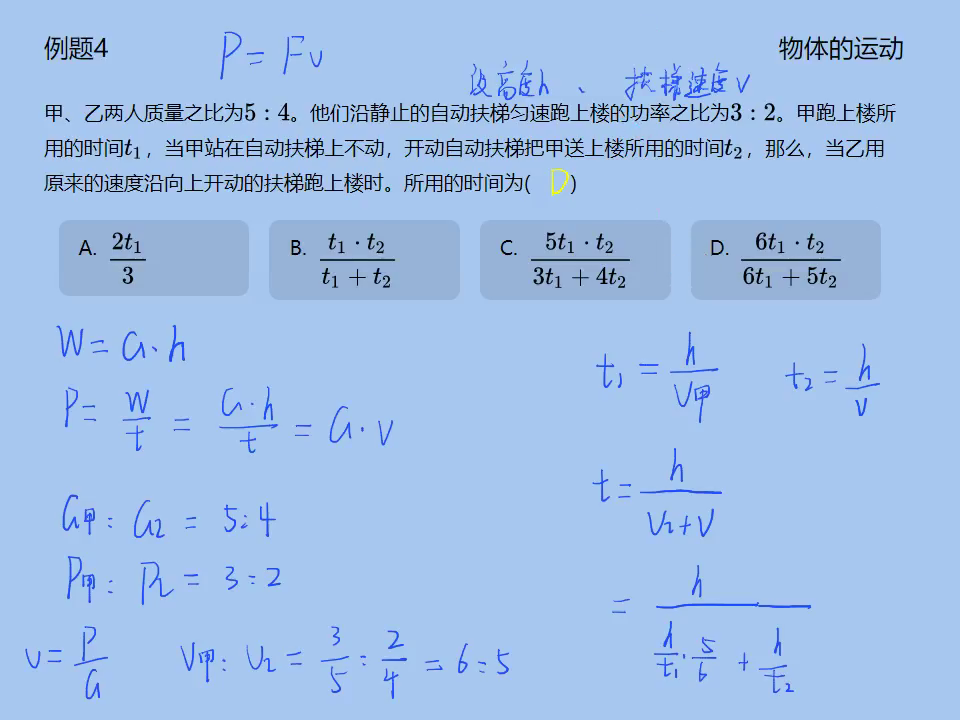 例题4
物体的运动
P = Fv
设高度h、扶梯速度v
甲、乙两人质量之比为5:4。他们沿静止的自动扶梯匀速跑上楼的功率之比为3:2。甲跑上楼所
用的时间t₁，当甲站在自动扶梯上不动，开动自动扶梯把甲送上楼所用的时间t₂，那么，当乙用
原来的速度沿向上开动的扶梯跑上楼时。所用的时间为( D )
A. 2t₁/3
B. t₁·t₂/(t₁+t₂)
C. 5t₁·t₂/(3t₁+4t₂)
D. 6t₁·t₂/(6t₁+5t₂)
W = G·h
P = W/t = G·h/t = G·v
G甲 : G乙 = 5:4
P甲 : P乙 = 3:2
v = P/G
V甲 : V乙 = 3/5 : 2/4 = 6:5
t₁ = h/V甲
t₂ = h/v
t = h/(V乙+V)
= h/(h/t₁·5/6 + h/t₂)